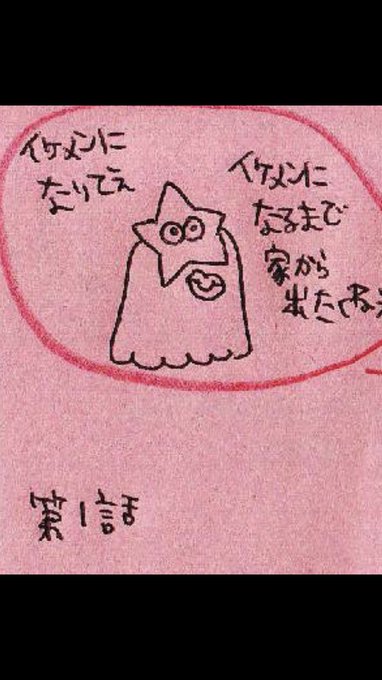 イケメンに
なりてえ
イケメンに
なるまで
家から
出たくねえ
第1話